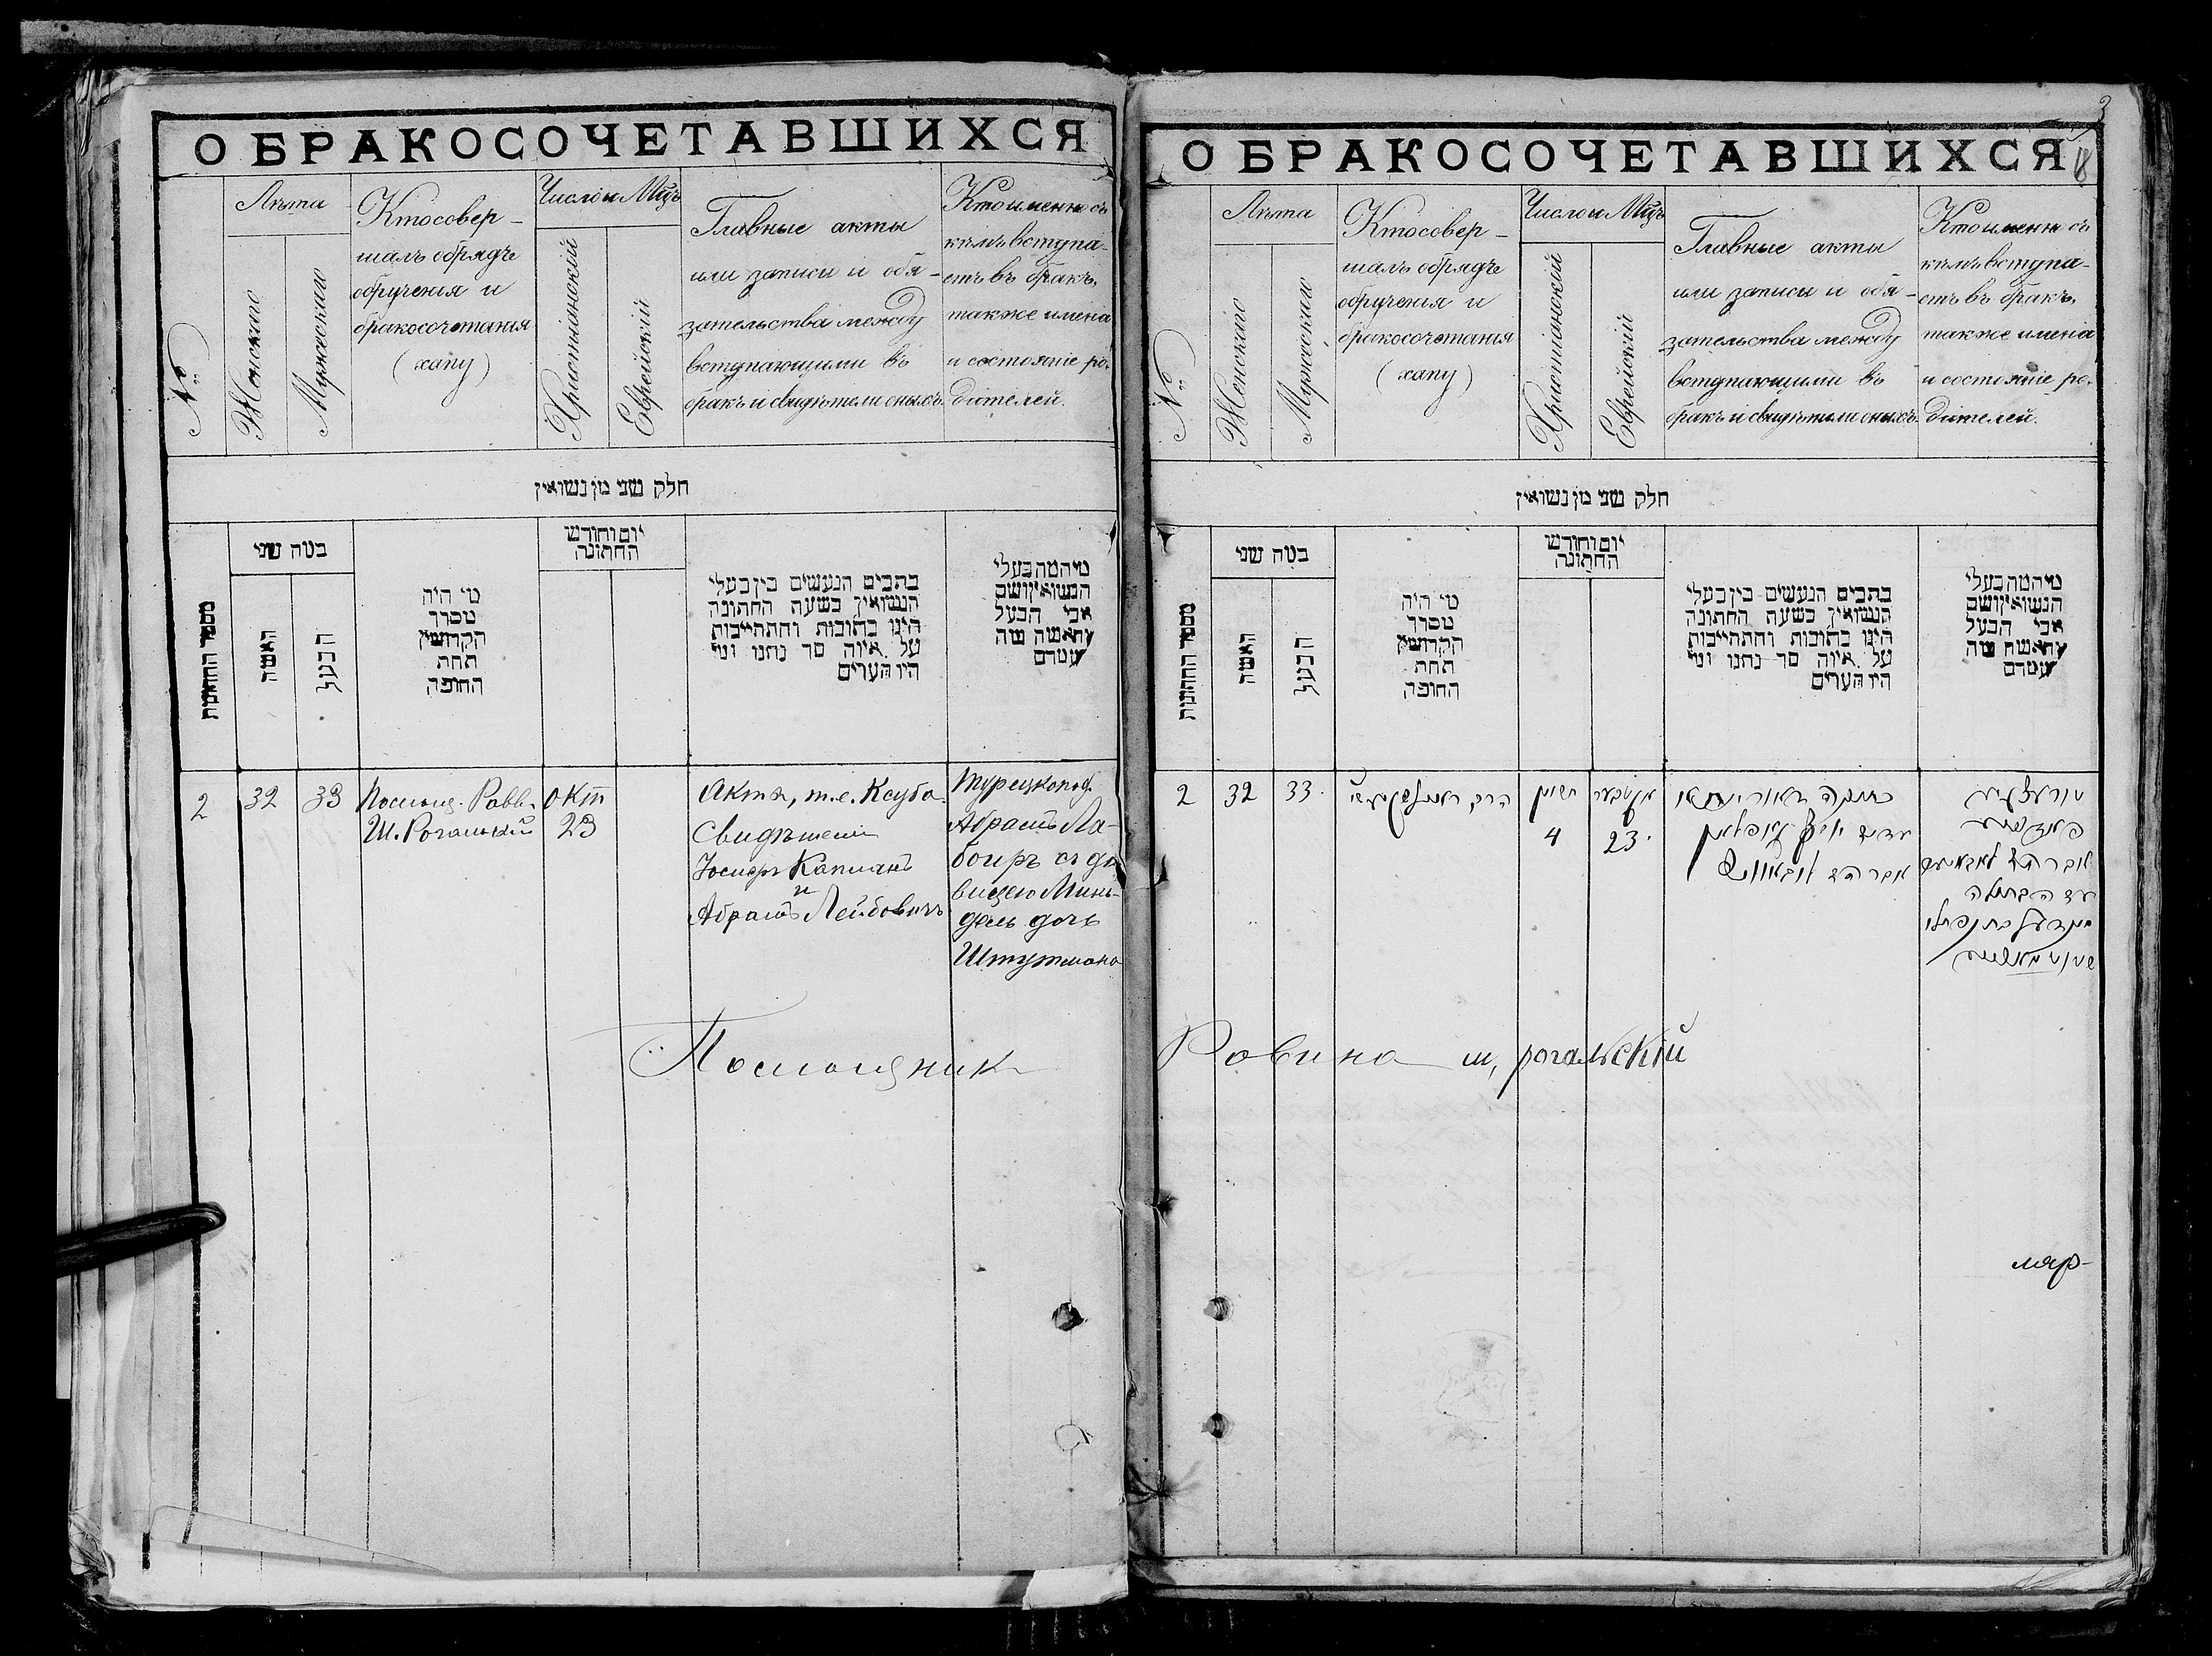 ОБРАКОСОЧЕТАВШИХСЯ
№
Лѣта
Женскаго
Мужескаго
Кто совер-
шалъ обрядъ
обрученія и
бракосочетания
(хапу)
Число и Мцъ
Христіанскій
Еврейскій
Главные акты
или записи и обя-
зательства между
вступающими въ
бракъ и свидѣтели оныхъ.
Кто именно съ
кѣмъ вступа-
етъ въ бракъ,
также имена
и состояніе ро-
дителей.
חלק שני מן נשואין
מספר החתונות
כמה שני
האשה
הבעל
מי היה
מסדר
הקדושין
תחת
החופה
יום וחודש
החתונה
כתבים הנעשים בין בעלי
הנשואין בשעה החתונה
הינו כתובות והתחייבות
על איזה סך נתנו ומי
היו העדים
מי המה בעלי
הנשואין ושם
אבי הבעל
והאשה
2
32
33
Помощ. Равв.
Ш. Рогальскій
окт
23
Актъ, т.е. Ксуба.
Свидѣтели
Іосифъ Капланъ
и
Абрамъ Лейбовичъ
Турецкопод.
Абрамъ Ла-
боиръ съ дѣ-
вицею Минь-
дель дочь
Штутмана
Помощник
ОБРАКОСОЧЕТАВШИХСЯ
18
№
Лѣта
Женскаго
Мужескаго
Кто совер-
шалъ обрядъ
обрученія и
бракосочетания
(хапу)
Число и Мцъ
Христіанскій
Еврейскій
Главные акты
или записи и обя-
зательства между
вступающими въ
бракъ и свидѣтели оныхъ.
Кто именно съ
кѣмъ вступа-
етъ въ бракъ,
также имена
и состояніе ро-
дителей.
חלק שני מן נשואין
מספר החתונות
כמה שני
האשה
הבעל
מי היה
מסדר
הקדושין
תחת
החופה
יום וחודש
החתונה
כתבים הנעשים בין בעלי
הנשואין בשעה החתונה
הינו כתובות והתחייבות
על איזה סך נתנו ומי
היו העדים
מי המה בעלי
הנשואין ושם
אבי הבעל
והאשה
2
32
33.
הרב
חשון
4
אקטבער
23.
כתובה
יוסף קאפלאן
אברהם
אברהם
עם הבתולה
מינדעל בת נפתלי
Равина ш, рогальскій